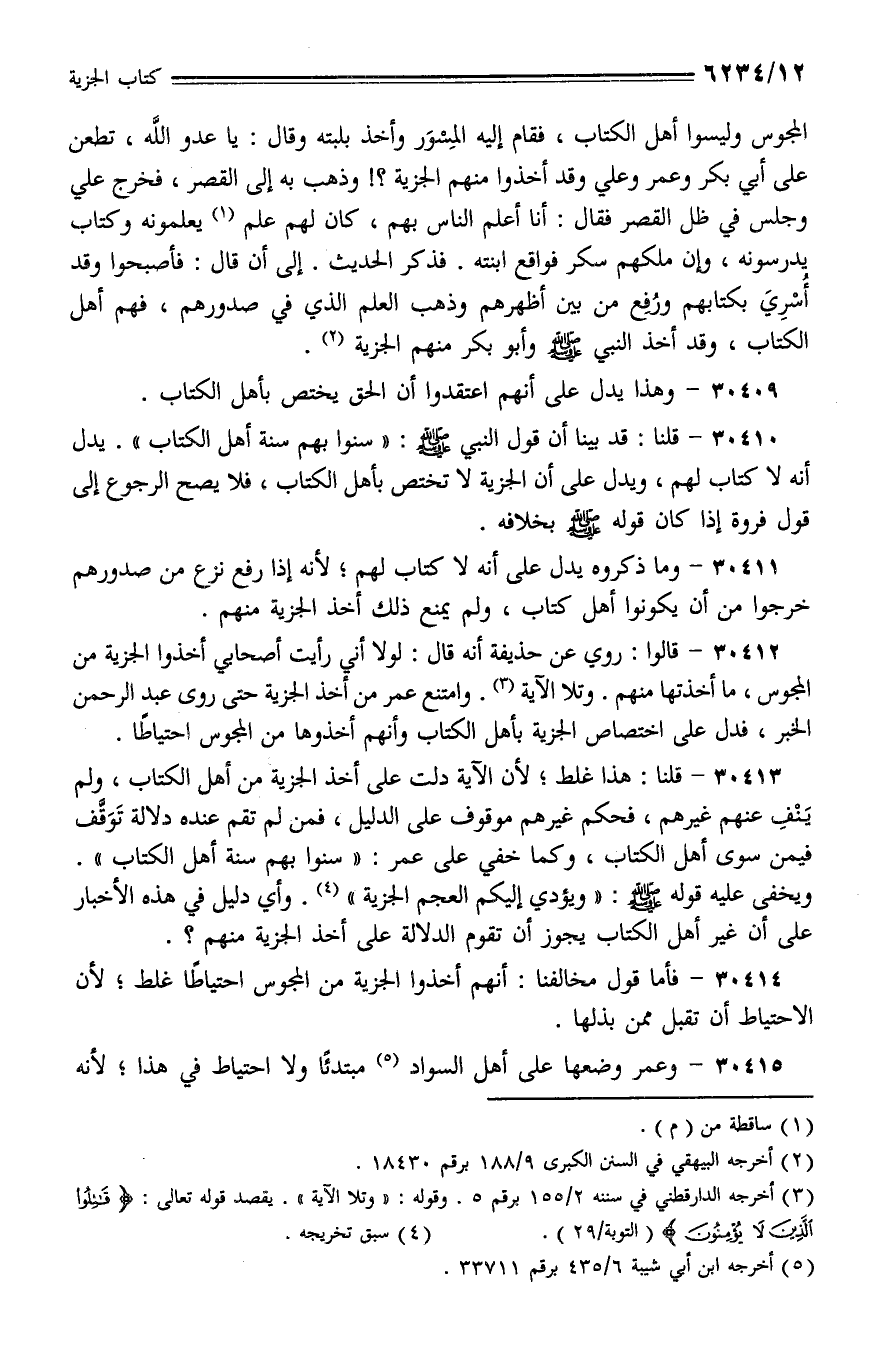 ٦٢٣٤/١٢ كتاب الجزية
المجوس وليسوا أهل الكتاب ، فقام إليه المِسْوَر وأخذ بلبته وقال : يا عدو اللَّه ، تطعن
على أبي بكر وعمر وعلي وقد أخذوا منهم الجزية ؟! وذهب به إلى القصر ، فخرج علي
وجلس في ظل القصر فقال : أنا أعلم الناس بهم ، كان لهم علم (١) يعلمونه وكتاب
يدرسونه ، وإن ملكهم سكر فواقع ابنته . فذكر الحديث . إلى أن قال : فأصبحوا وقد
أُسْرِيَ بكتابهم ورُفِع من بين أظهرهم وذهب العلم الذي في صدورهم ، فهم أهل
الكتاب ، وقد أخذ النبي ﷺ وأبو بكر منهم الجزية (٢) .
٣٠٤٠٩ - وهذا يدل على أنهم اعتقدوا أن الحق يختص بأهل الكتاب .
٣٠٤١٠ - قلنا : قد بينا أن قول النبي ﷺ : « سنوا بهم سنة أهل الكتاب » . يدل
أنه لا كتاب لهم ، ويدل على أن الجزية لا تختص بأهل الكتاب ، فلا يصح الرجوع إلى
قول فروة إذا كان قوله ﷺ بخلافه .
٣٠٤١١ - وما ذكروه يدل على أنه لا كتاب لهم ؛ لأنه إذا رفع نزع من صدورهم
خرجوا من أن يكونوا أهل كتاب ، ولم يمنع ذلك أخذ الجزية منهم .
٣٠٤١٢ - قالوا : روي عن حذيفة أنه قال : لولا أني رأيت أصحابي أخذوا الجزية من
المجوس ، ما أخذتها منهم . وتلا الآية (٣) . وامتنع عمر من أخذ الجزية حتى روى عبد الرحمن
الخبر ، فدل على اختصاص الجزية بأهل الكتاب وأنهم أخذوها من المجوس احتياطًا .
٣٠٤١٣ - قلنا : هذا غلط ؛ لأن الآية دلت على أخذ الجزية من أهل الكتاب ، ولم
يَنْفِ عنهم غيرهم ، فحكم غيرهم موقوف على الدليل ، فمن لم تقم عنده دلالة تَوَقَّف
فيمن سوى أهل الكتاب ، وكما خفي على عمر : « سنوا بهم سنة أهل الكتاب » .
ويخفى عليه قوله ﷺ : « ويؤدي إليكم العجم الجزية » (٤) . وأي دليل في هذه الأخبار
على أن غير أهل الكتاب يجوز أن تقوم الدلالة على أخذ الجزية منهم ؟ .
٣٠٤١٤ - فأما قول مخالفنا : أنهم أخذوا الجزية من المجوس احتياطًا غلط ؛ لأن
الاحتياط أن تقبل ممن بذلها .
٣٠٤١٥ - وعمر وضعها على أهل السواد (٥) مبتدئًا ولا احتياط في هذا ؛ لأنه
(١) ساقطة من ( م ) .
(٢) أخرجه البيهقي في السنن الكبرى ١٨٨/٩ برقم ١٨٤٣٠ .
(٣) أخرجه الدارقطني في سننه ١٥٥/٢ برقم ٥ . وقوله : « وتلا الآية » . يقصد قوله تعالى : ﴿ قَٰتِلُوا
ٱلَّذِينَ لَا يُؤْمِنُونَ ﴾ ( التوبة/٢٩ ) . (٤) سبق تخريجه .
(٥) أخرجه ابن أبي شيبة ٤٣٥/٦ برقم ٣٣٧١١ .